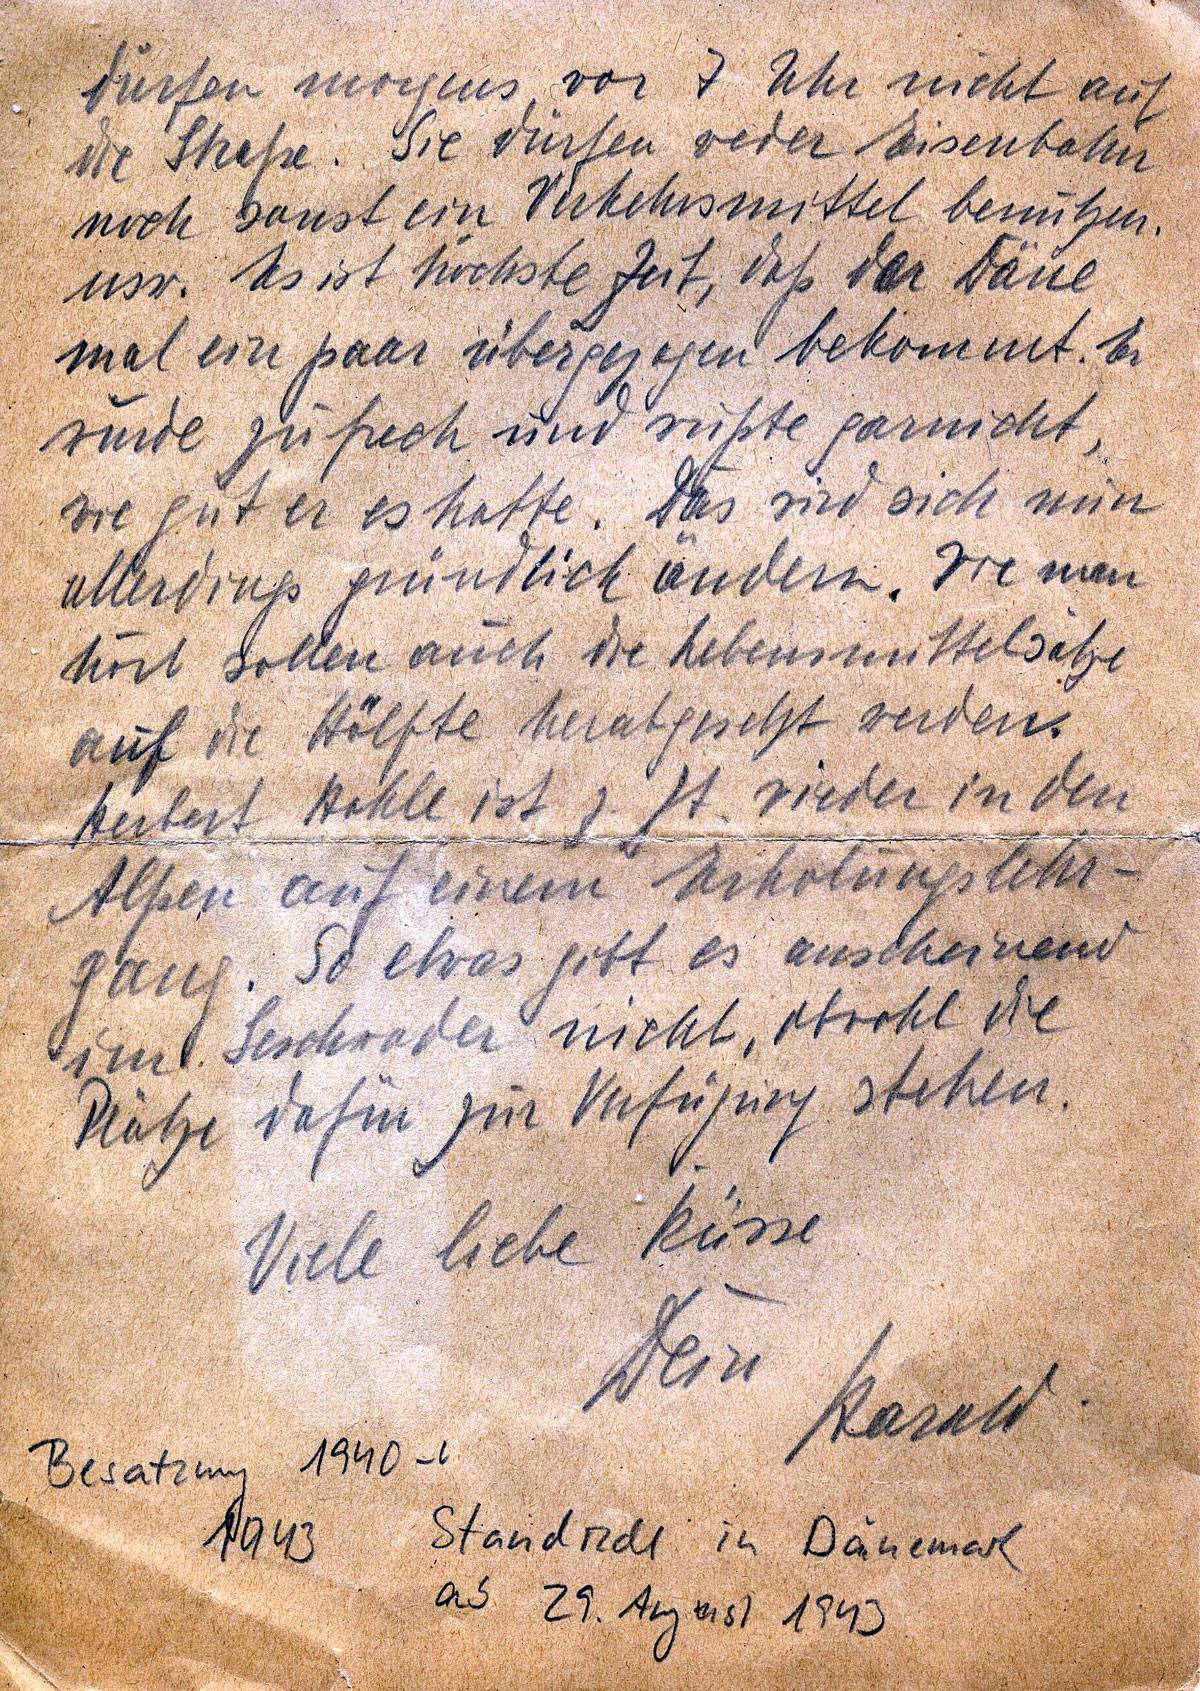 dürfen morgens vor 7 Uhr nicht auf
die Straße. Sie dürfen weder Eisenbahn
noch sonst ein Verkehrsmittel benutzen.
usw. Es ist höchste Zeit, daß der Däne
mal ein paar übergezogen bekommt. Er
wurde zu frech und wußte garnicht,
wie gut er es hatte. Das wird sich nun
allerdings gründlich ändern. Wie man
hört sollen auch die Lebensmittelsätze
auf die Hälfte herabgesetzt werden.
Herbert Hohle ist z. Zt. wieder in den
Alpen auf einem Erholungslehr-
gang. So etwas gibt es anscheinend
im Geschwader nicht, obwohl die
Plätze dafür zur Verfügung stehen.
Viele liebe Küsse
Dein
Harald.
Besatzung 1940
1943 Standrecht in Dänemark
ab 29. August 1943